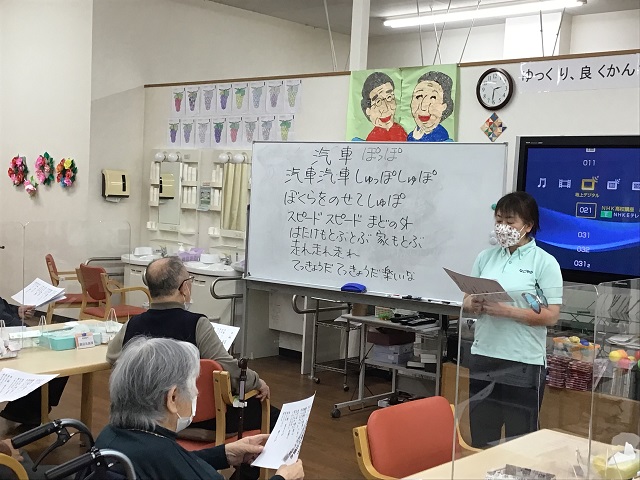 汽車 ぽっぽ
汽車汽車 しゅっぽしゅぽ
ぼくらをのせてしゅぽ
スピードスピード まどの外
はたけもとぶとぶ 家もとぶ
走れ走れ走れ
てっきょうだてっきょうだ楽いな
ゆっくり、良くかん
011
地上デジタル
021
NHK高校講座
NHKEテレ
031
031₂